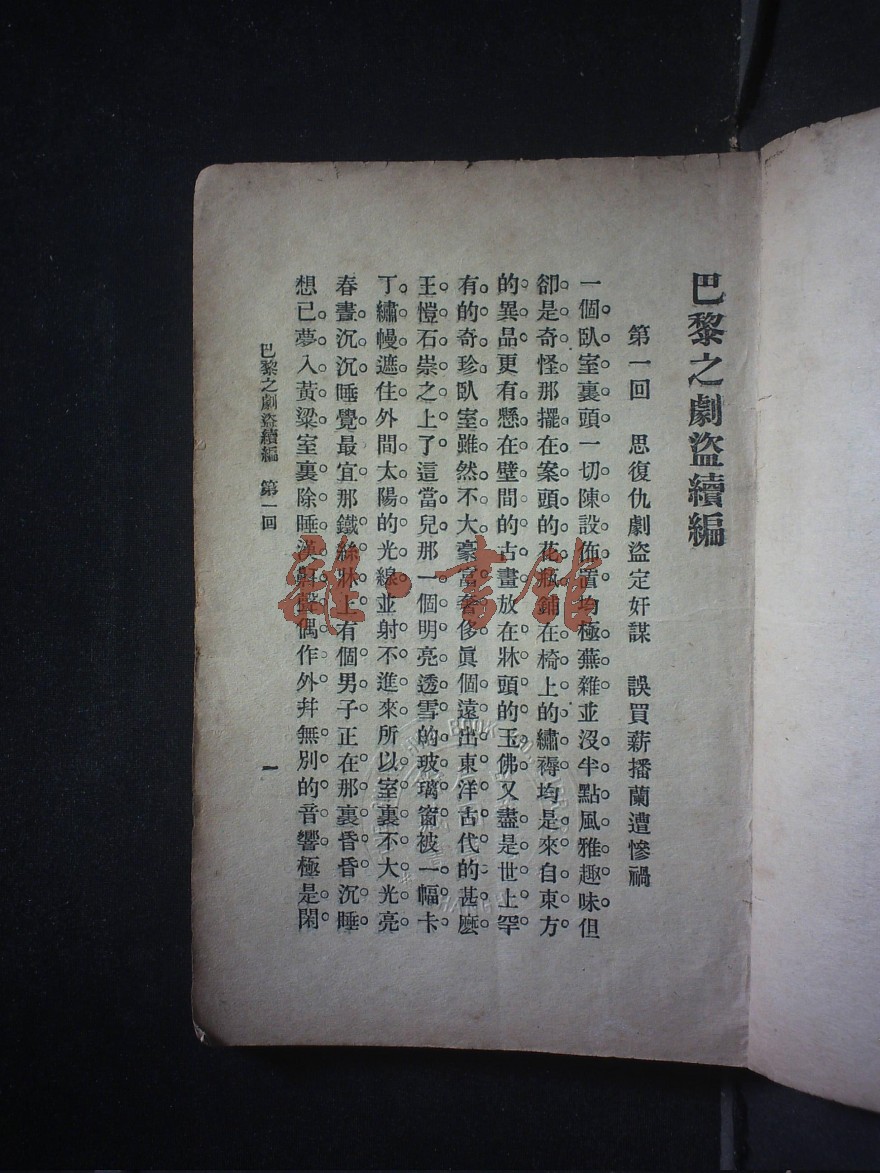 巴黎之劇盜續編
第一回 思復仇劇盜定奸謀 誤買薪播蘭遭慘禍
一個臥室裏頭一切陳設佈置均極蕪雜並沒半點風雅趣味但
卻是奇怪那擺在案頭的花瓶鋪在椅上的繡褥均是來自東方
的異品更有懸在壁間的古畫放在牀頭的玉佛又盡是世上罕
有的奇珍臥室雖然不大豪富奢侈眞個遠出東洋古代的甚麽
王愷石崇之上了這當兒那一個明亮透雪的玻璃窗被一幅卡
丁繡幔遮住外間太陽的光線並射不進來所以室裏不大光亮
春晝沉沉睡覺最宜那鐵絲牀上有個男子正在那裏昏昏沉睡
想已夢入黃粱室裏除睡漢鼾聲偶作外幷無別的音響極是閑
巴黎之劇盜續編 第一回
一
雜·書館
BOOK